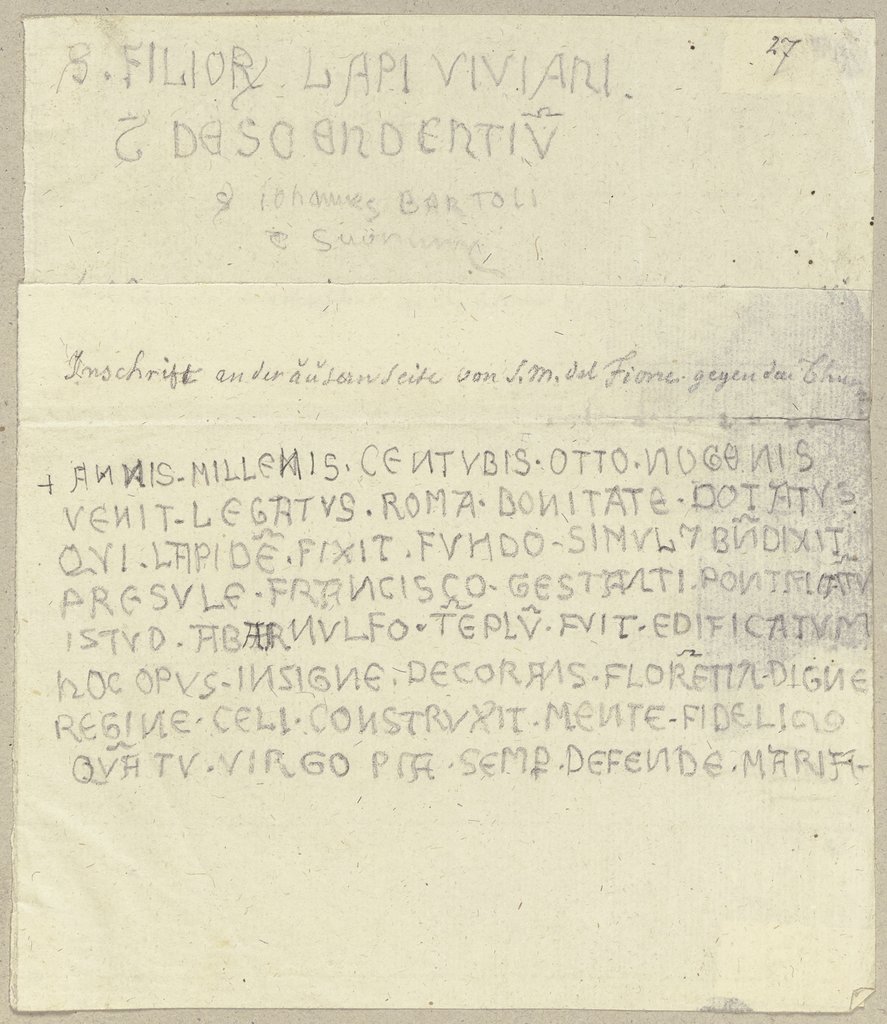 27
S. FILIOR LAPI VIVIANI.
⁊ DESCENDENTIŪ
S Iohannes BARTOLI
Inschrift an der äußern Seite von S. M. del Fiore gegen den
+ ANNIS. MILLENIS. CENTVBIS. OTTO. NOGENIS
VENIT. LEGATVS. ROMA. BONITATE. DOTATVS
QVI. LAPIDĒ. FIXIT. FVNDO. SIMVL ⁊ BN̄DIXIT
PRESVLE. FRANCISCO. GESTANTI. PONTIFICATV̄
ISTVD. AB ARNVLFO. TĒPLV̄. FVIT. EDIFICATVM
HOC OPVS. INSIGNE. DECORANS. FLORĒTIA. DIGNE
REGINE. CELI. CONSTRVXIT. MENTE. FIDELI
QVĀ TV. VIRGO PIA. SEMꝑ. DEFENDE. MARIA.